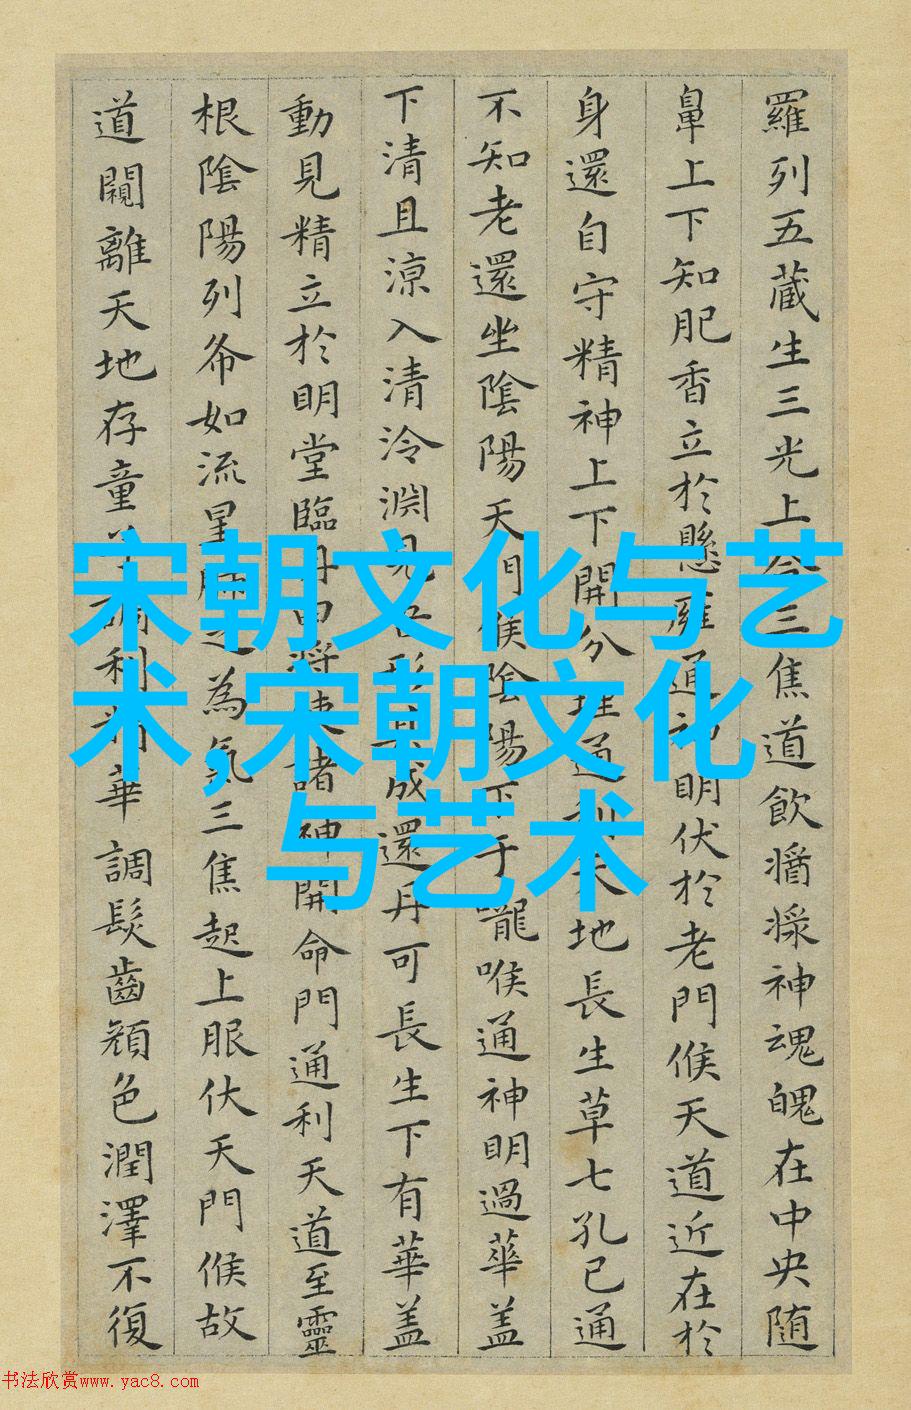 羅列五藏生三光上合三焦道飲醬漿神魂魄在中央随
鼻上下知肥香立於懸雍通神明伏於老門候天道近在於
身還自守精神上下開分理通利天地長生草七孔已通
不知老還坐陰陽天門候陰陽下于嚨喉通神明過華盖
下清且涼入清泠淵見吾形其成還丹可長生下有華盖
動見精立於明堂臨丹田將使諸神開命門通利天道至靈
根陰陽列布如流星肺之為氣三焦起上服伏天門候故
道闚離天地存童子調利精華調髮齒顏色潤澤不復
宋朝文化与艺
术,宋朝文化
与艺术
书法欣赏www.yac8.com